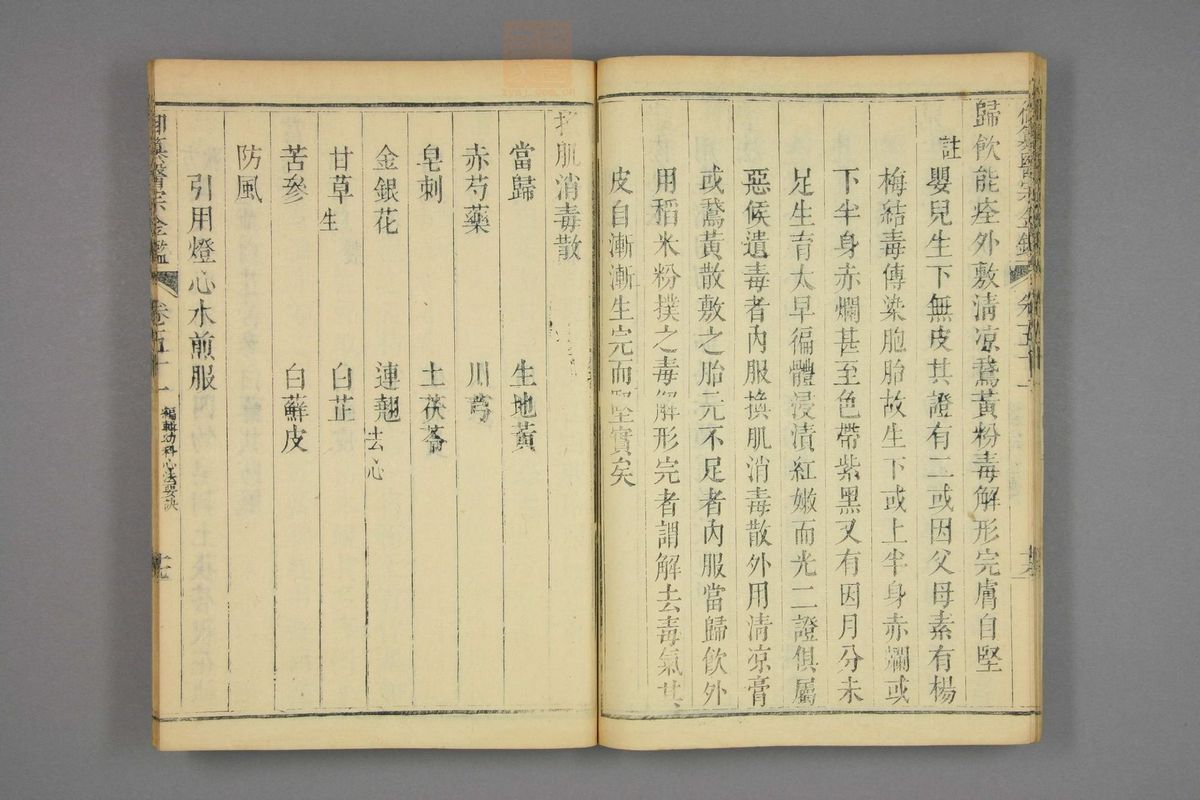 歸飲能痊外敷清凉鵞黃粉毒解形完膚自堅
註
嬰兒生下無皮其證有二或因父母素有楊
梅結毒傳染胞胎故生下或上半身赤爛或
下半身赤爛甚至色帶紫黑又有因月分未
足生育太早徧體浸漬紅嫩而光二證俱屬
惡候遺毒者內服換肌消毒散外用清凉膏
或鵞黃散敷之胎元不足者內服當歸飲外
用稻米粉撲之毒解形完者謂解去毒氣其
皮自漸漸生完而堅實矣
換肌消毒散
當歸 生地黃
赤芍藥 川芎
皂刺 土茯苓
金銀花 連翹去心
甘草生 白芷
苦參 白蘚皮
防風
引用燈心水煎服
御纂醫宗金鑑 卷五十一 編輯幼科心法要訣